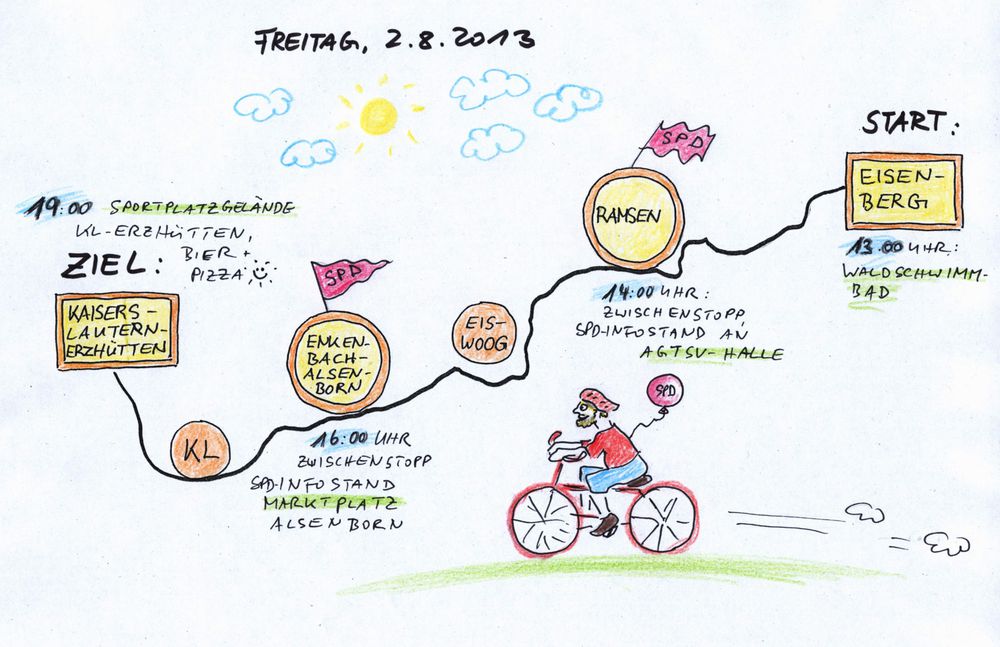 FREITAG, 2.8.2013
START:
EISEN-
BERG
13.00 UHR:
WALDSCHWIMM-
BAD
SPD
RAMSEN
14:00 UHR:
ZWISCHENSTOPP,
SPD-INFOSTAND AN
AGTSV-HALLE
EIS-
WOOG
SPD
ENKEN-
BACH-
ALSEN-
BORN
16:00 UHR
ZWISCHENSTOPP
SPD-INFOSTAND
MARKTPLATZ
ALSENBORN
KL
19:00 SPORTPLATZGELÄNDE
KL-ERZHÜTTEN,
BIER +
PIZZA
ZIEL:
KAISERS-
LAUTERN-
ERZHÜTTEN
SPD